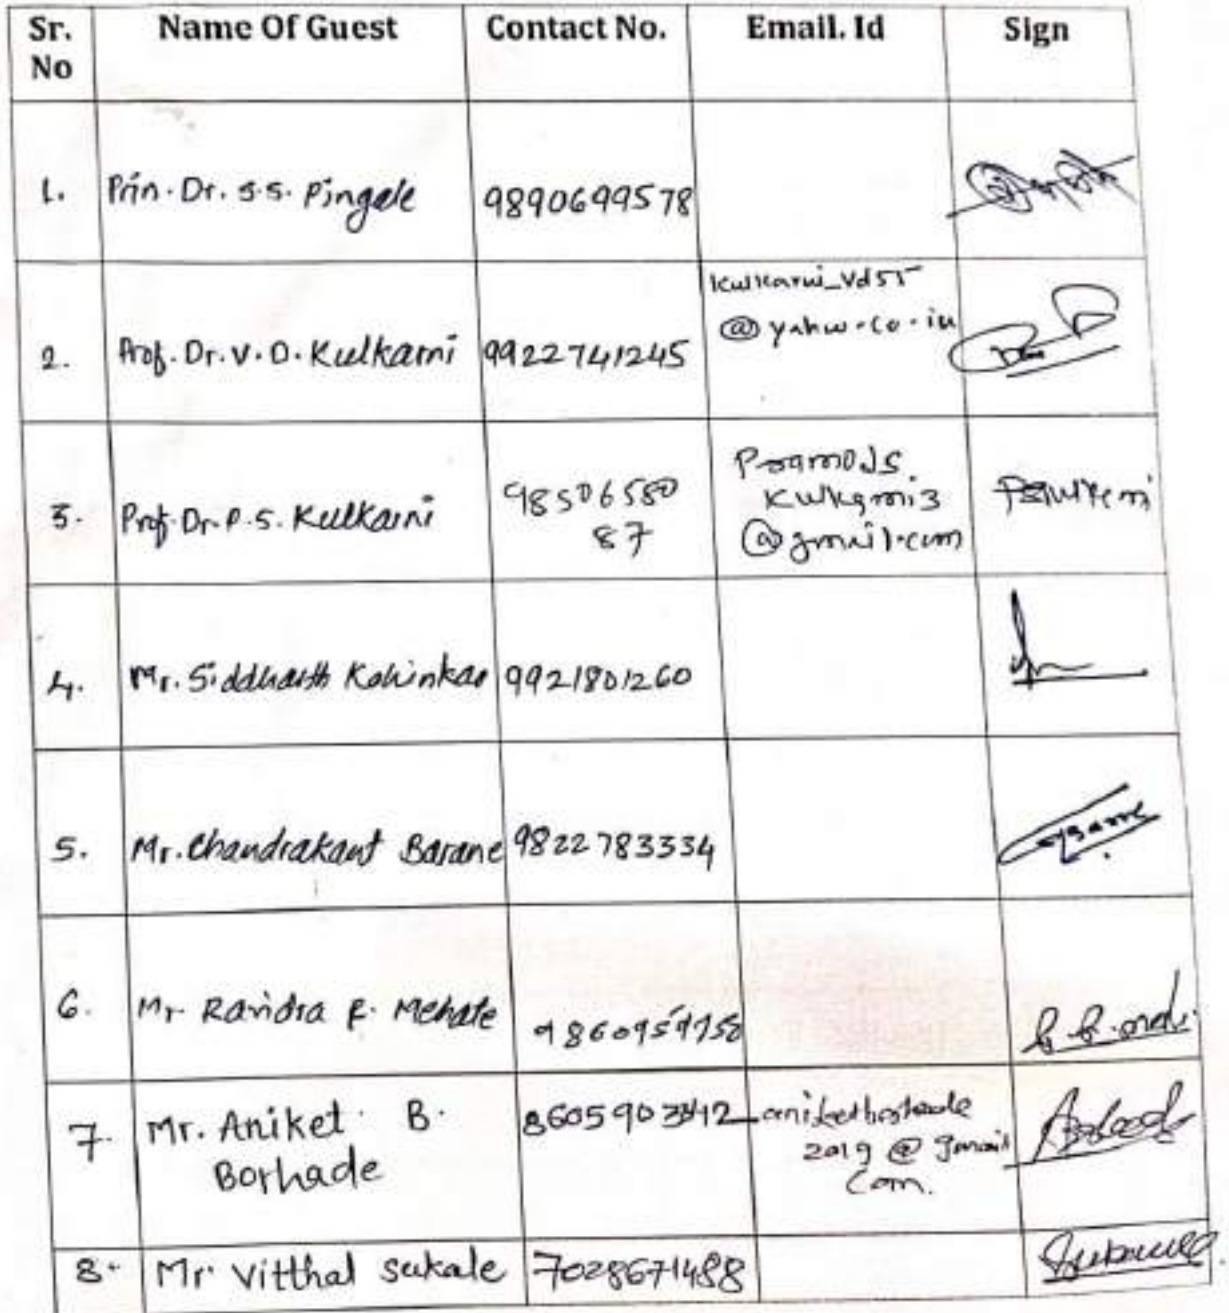 Sr. No Name Of Guest Contact No. Email. Id Sign
1. Prin. Dr. S.S. Pingale 9890699578
kulkarni_vd55
@yahoo.co.in
2. Prof. Dr. V. D. Kulkarni 9922741245
3. Prof. Dr. P. S. Kulkarni 98506580
87
Pramods
kulkarni3
@gmail.com
4. Mr. Siddharth Kohinkar 9921801260
5. Mr. Chandrakant Barane 9822783334
6. Mr. Ravidra R. Mehate
7. Mr. Aniket B.
Borhade
8605903842 aniketborhade
2019 @ gmail
Com.
8. Mr Vitthal sukale 7028671488